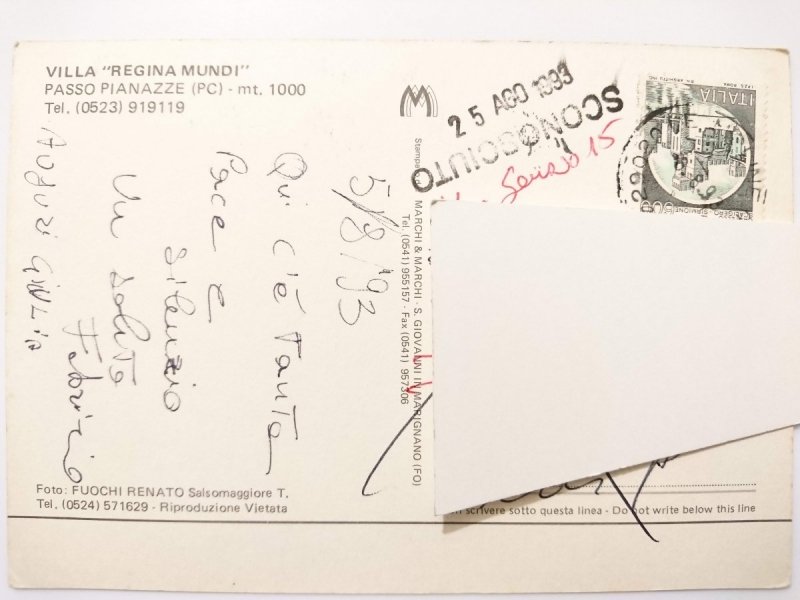 VILLA "REGINA MUNDI"
PASSO PIANAZZE (PC) - mt. 1000
Tel. (0523) 919119
5/8/93
Qui c'è tanta
Pace e
silenzio
Un saluto
Fabrizio
Auguri Giulia
Foto: FUOCHI RENATO Salsomaggiore T.
Tel. (0524) 571629 - Riproduzione Vietata
M
Stampa
MARCHI & MARCHI - S. GIOVANNI IN MARIGNANO (FO)
Tel. (0541) 955157 - Fax (0541) 957306
25 AGO 1993
SCONOSCIUTO
Senso 15
ITALIA
29022
scrivere sotto questa linea - Do not write below this line